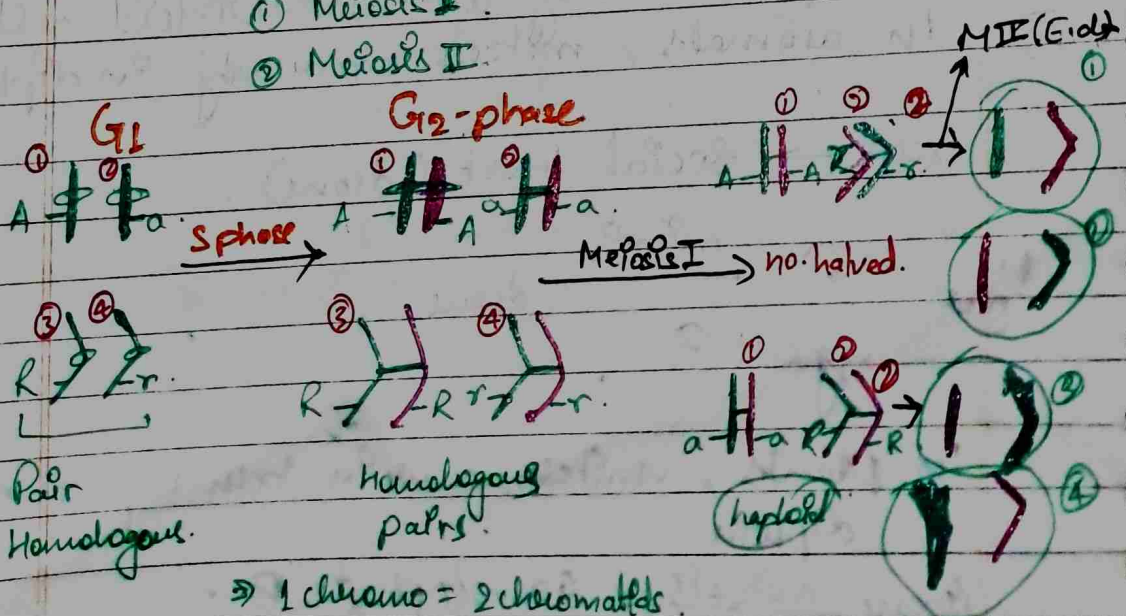 ① Meiosis I.
② Meiosis II.
MII (E.d)
①
G1
G2-phase
① ② ②
① ②
A a
① ②
A A a a
A A r
S phase
Meiosis I
no. halved.
③ ④
R r
③ ④
R R r r
① ② ②
a a R R
③
④
Pair
Homologous.
Homologous
pairs.
haploid
⇒ 1 chromo = 2 chromatids